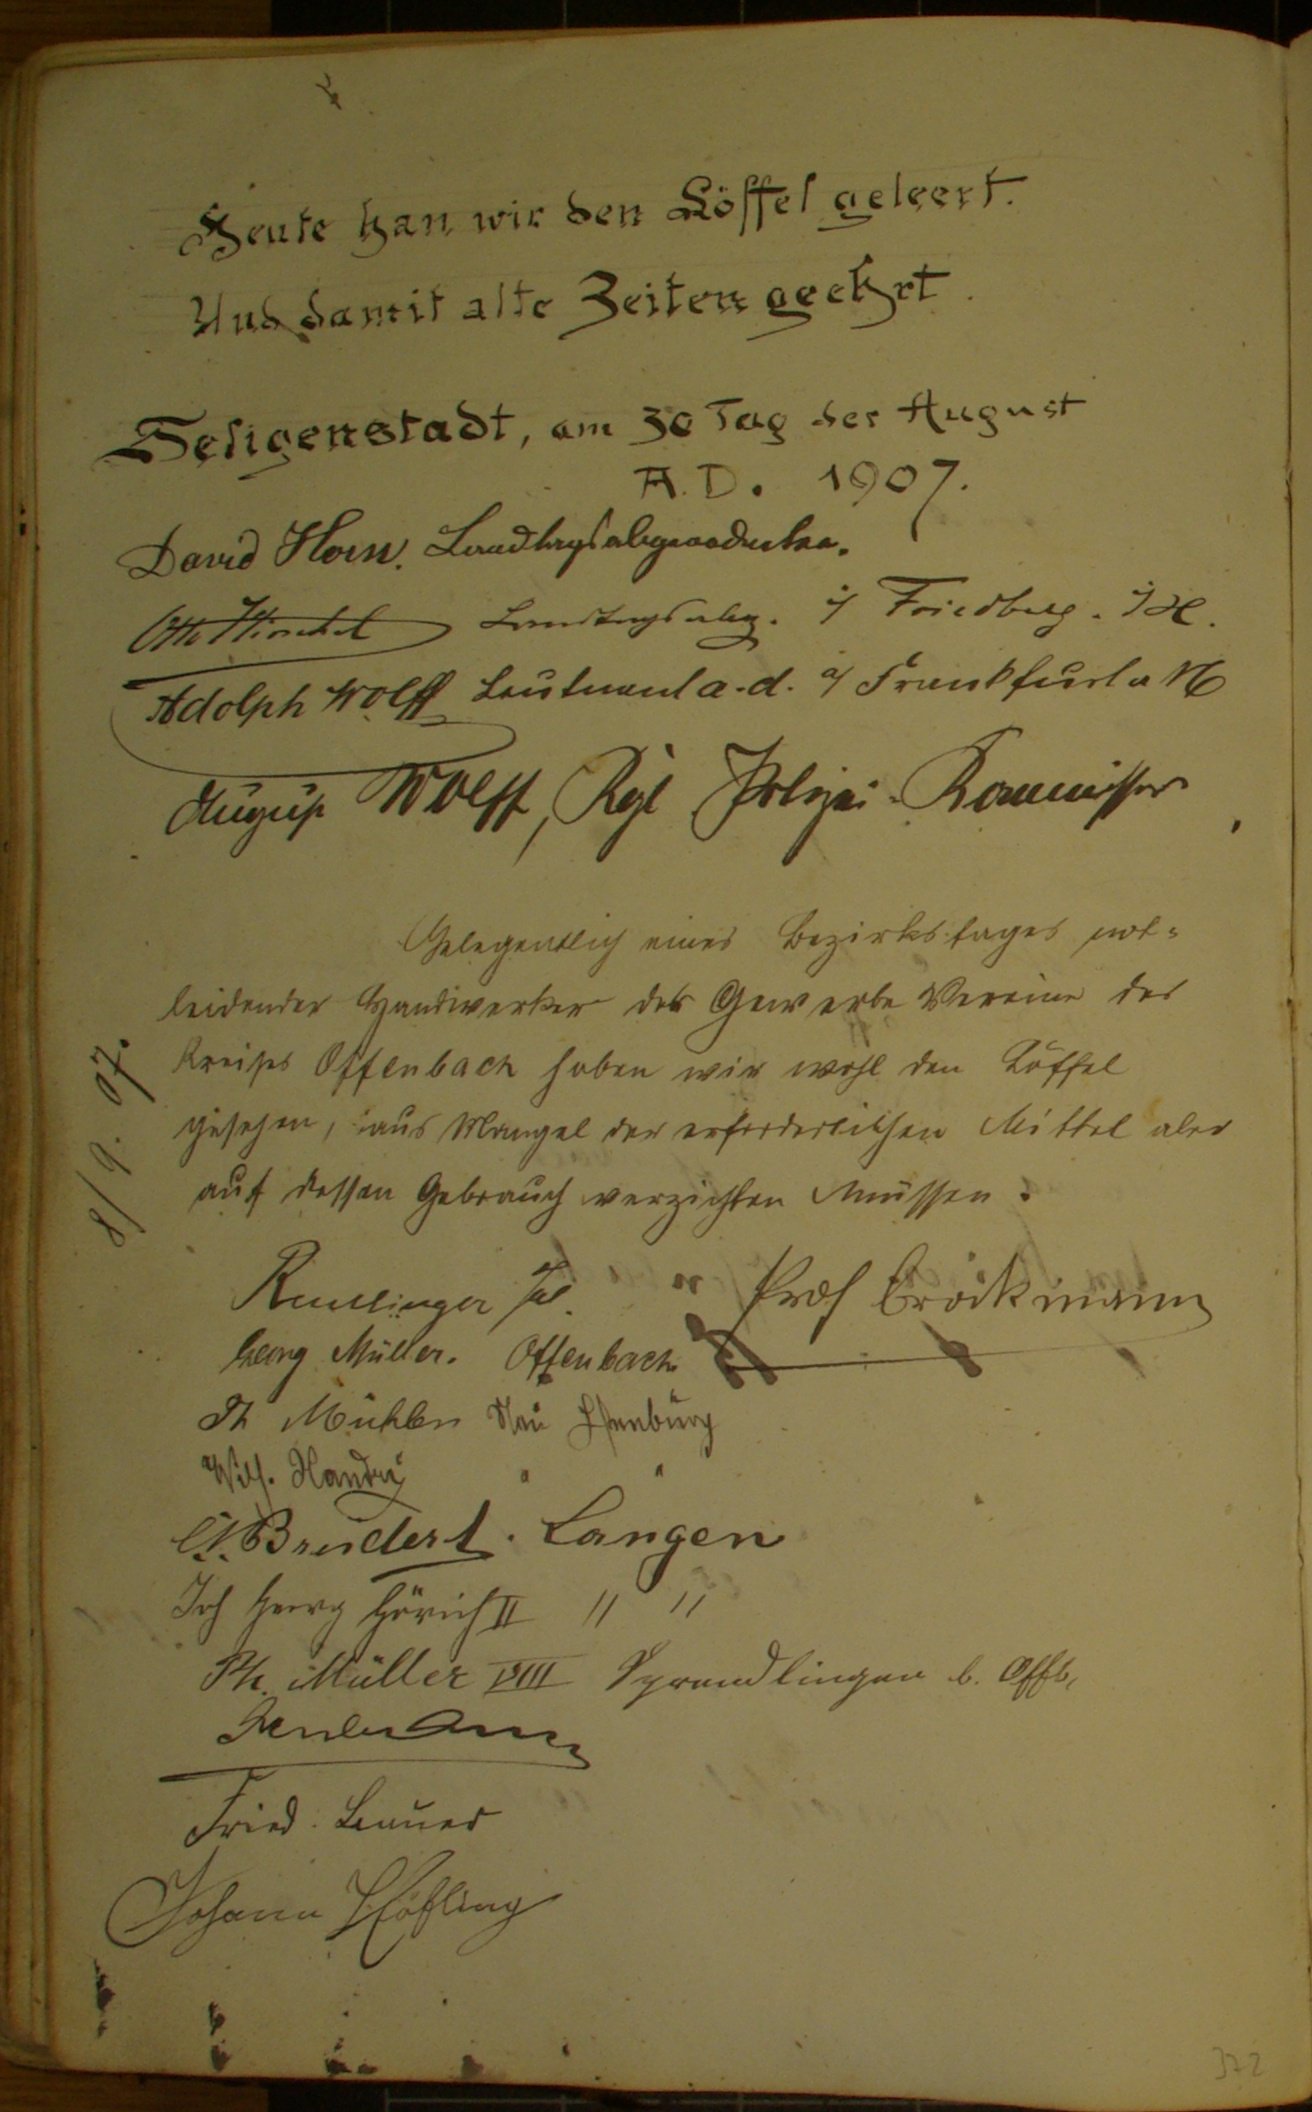 Heute han wir den Löffel geleert.
Und damit alte Zeiten geehrt.
Seligenstadt, am 30 Tag des August
A.D. 1907.
David Horn. Landtagsabgeordneter.
Otto Hirschel Landtagsabg. Friedberg
Adolph Wolff Leutnant a. d. Frankfurt a M
August Wolff, Kgl Polizei-Kommissar
Gelegentlich eines Bezirkstages not-
leidender Handwerker der Gewerbe Vereine des
Kreises Offenbach haben wir wohl den Löffel
gesehen, aus Mangel der erforderlichen Mittel aber
auf dessen Gebrauch verzichten müssen.
8/9. 07.
Prof Brockmann
Georg Müller. Offenbach
Neu Isenburg
Wilh. " "
Brudert. Langen
Joh Georg Görich II " "
Ph. Müller VIII Sprendlingen b. Offb.
Fried. Bauer
Johann Höfling
372